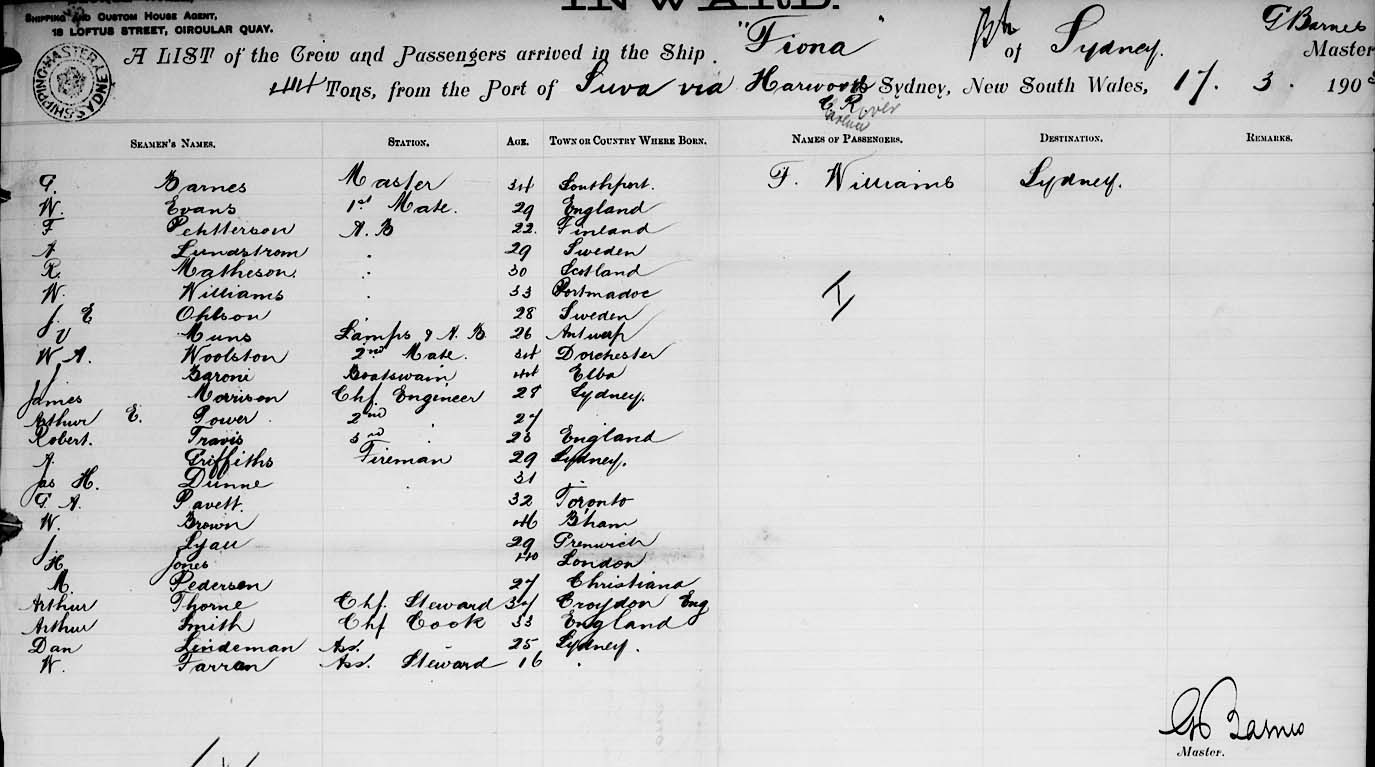 INWARD.
SHIPPING AND CUSTOM HOUSE AGENT,
18 LOFTUS STREET, CIRCULAR QUAY.
SHIPPING MASTER SYDNEY
A LIST of the Crew and Passengers arrived in the Ship "Fiona" of Sydney. G Barnes Master
Tons, from the Port of Suva via Harwood Sydney, New South Wales, 17. 3. 190
C. River
SEAMEN'S NAMES. STATION. AGE. TOWN OR COUNTRY WHERE BORN. NAMES OF PASSENGERS. DESTINATION. REMARKS.
G. Barnes Master 34 Southport. F. Williams Sydney.
W. Evans 1st Mate. 29 England
F Pehtterson A. B 22. Finland
A Lundstrom 29 Sweden
R. Matheson. 30 Scotland
W. Williams 33 Portmadoc
J. E Ohlson 28 Sweden
V Muns Lamps & A. B 26 Antwerp
W A. Woolston 2nd Mate. 34 Dorchester
J Baroni Boatswain 44 Elba
James Morrison Chf. Engineer 28 Sydney.
Arthur E. Power 2nd 27
Robert. Travis 3rd 25 England
A. Griffiths Fireman 29 Sydney.
Jas H. Dunne 31
G A. Pavett. 32 Toronto
W. Brown 46 Bham
J. Lyall 29 Grenwich
H. Jones 40 London
M. Pedersen 27 Christiana
Arthur Thorne Chf. Steward 37 Croydon Eng
Arthur Smith Chf Cook 33 England
Dan Lindeman Ass. 25 Sydney.
W. Farran Ass. Steward 16
G Barnes
Master.